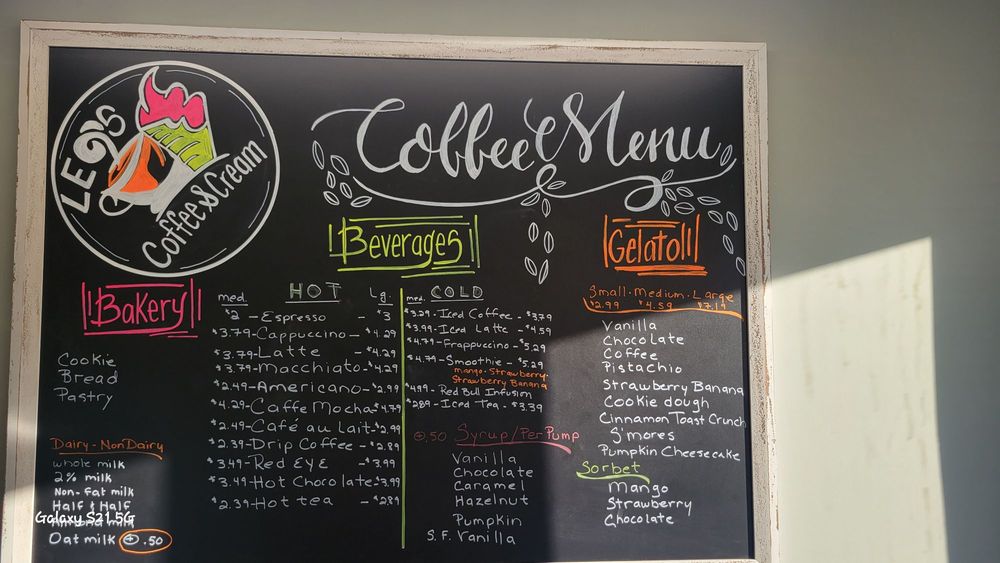 LEO'S
Coffee & Cream
Coffee Menu
Beverages
Gelato
Bakery
Cookie
Bread
Pastry
Dairy - NonDairy
whole milk
2% milk
Non-fat milk
Half & Half
Almond milk
Oat milk + .50
Galaxy S21 5G
med. HOT Lg.
$2 - Espresso - $3
$3.79-Cappuccino- $4.29
$3.79-Latte - $4.29
$3.79-Macchiato-$4.29
$2.49-Americano-$2.99
$4.29-Caffe Mocha-$4.79
$2.49-Café au Lait-$2.99
$2.39-Drip Coffee - $2.89
$3.49-Red EYE - $3.99
$3.49-Hot Chocolate-$3.99
$2.39-Hot tea - $2.89
med. COLD
$3.29-Iced Coffee-$3.79
$3.99-Iced Latte-$4.59
$4.79-Frappuccino-$5.29
$4.79-Smoothie-$5.29
mango-Strawberry-
Strawberry Banana
$4.99- Red Bull Infusion
$2.89-Iced Tea-$3.39
+.50 Syrup/Per Pump
Vanilla
Chocolate
Caramel
Hazelnut
Pumpkin
S.F. Vanilla
Small-Medium-Large
$2.99 $4.59
Vanilla
Chocolate
Coffee
Pistachio
Strawberry Banana
Cookie dough
Cinnamon Toast Crunch
S'mores
Pumpkin Cheesecake
Sorbet
Mango
Strawberry
Chocolate